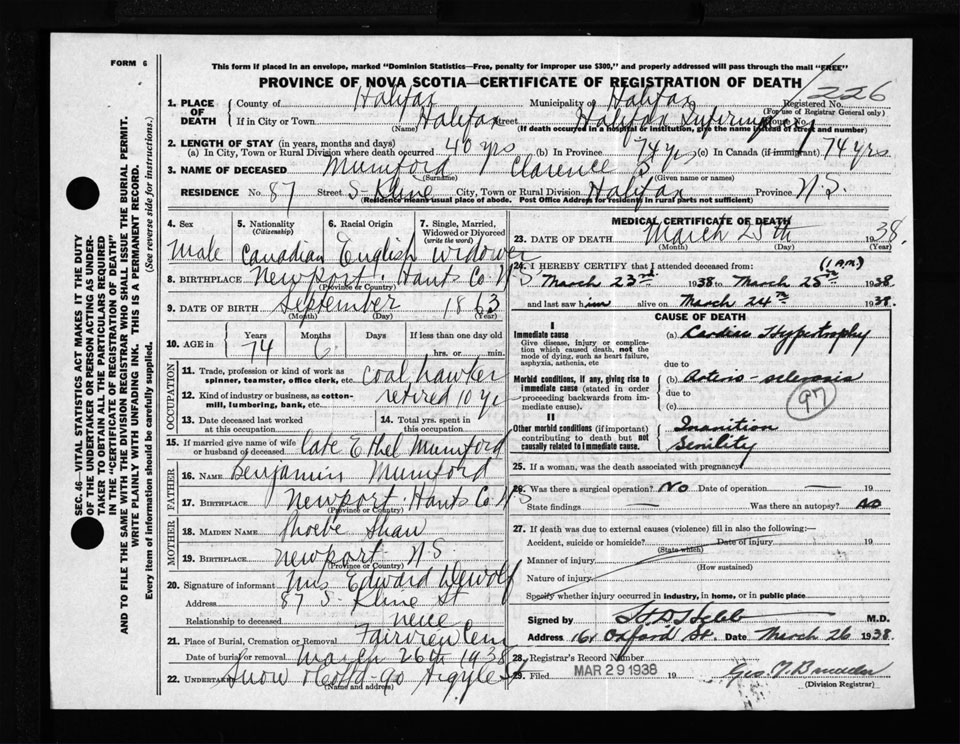 FORM 6
This form if placed in an envelope, marked "Dominion Statistics—Free, penalty for improper use $300," and properly addressed will pass through the mail "FREE"
PROVINCE OF NOVA SCOTIA—CERTIFICATE OF REGISTRATION OF DEATH
226
1. PLACE OF DEATH County of Halifax Municipality of Halifax Registered No.
(For use of Registrar General only)
If in City or Town Halifax Street Halifax Infirmary House No.
(Name) (If death occurred in a hospital or institution, give the name instead of street and number)
2. LENGTH OF STAY (in years, months and days)
(a) In City, Town or Rural Division where death occurred 40 yrs (b) In Province 74 yrs (c) In Canada (if immigrant) 74 yrs
3. NAME OF DECEASED Mumford Clarence S
(Surname) (Given name or names)
RESIDENCE No. 87 Street S. Kline City, Town or Rural Division Halifax Province N.S.
(Residence means usual place of abode. Post Office Address for residents in rural parts not sufficient)
4. Sex 5. Nationality (Citizenship) 6. Racial Origin 7. Single, Married, Widowed or Divorced (write the word)
Male Canadian English Widower
8. BIRTHPLACE Newport Hants Co. N.S
(Province or Country)
9. DATE OF BIRTH September 1863
(Month) (Day) (Year)
10. AGE in Years Months Days If less than one day old
74 6 hrs. or min.
OCCUPATION
11. Trade, profession or kind of work as spinner, teamster, office clerk, etc. coal hawker
12. Kind of industry or business, as cotton-mill, lumbering, bank, etc. retired 10 yrs
13. Date deceased last worked at this occupation 14. Total yrs. spent in this occupation
15. If married give name of wife or husband of deceased late Ethel Mumford
FATHER
16. NAME Benjamin Mumford
17. BIRTHPLACE Newport. Hants Co. N.S
(Province or Country)
MOTHER
18. MAIDEN NAME Phoebe Shaw
19. BIRTHPLACE Newport N.S.
(Province or Country)
20. Signature of informant Mrs Edward Dewolf
Address 87 S. Kline St
Relationship to deceased neice
21. Place of Burial, Cremation or Removal Fairview Cem
Date of burial or removal March 26th 1938
22. UNDERTAKER Snow &Co Argyle St
(Name and address)
MEDICAL CERTIFICATE OF DEATH
23. DATE OF DEATH March 25th 1938.
(Month) (Day) (Year)
24. I HEREBY CERTIFY that I attended deceased from: (1 A.M.)
March 23rd 1938 to March 25th 1938
and last saw him alive on March 24th 1938.
CAUSE OF DEATH
I
Immediate cause (a) Cardiac Hypertrophy
Give disease, injury or complication which caused death, not the mode of dying, such as heart failure, asphyxia, asthenia, etc
due to
Morbid conditions, if any, giving rise to immediate cause (stated in order proceeding backwards from immediate cause).
(b) Arterio-sclerosis
due to
(c)
97
II
Other morbid conditions (if important) contributing to death but not causally related to immediate cause.
Inanition
Senility
25. If a woman, was the death associated with pregnancy?
26. Was there a surgical operation? No Date of operation — 19
State findings — Was there an autopsy? No
27. If death was due to external causes (violence) fill in also the following:—
Accident, suicide or homicide? Date of injury 19
(State which)
Manner of injury
(How sustained)
Nature of injury
Specify whether injury occurred in industry, in home, or in public place
Signed by M.D.
Address 161 Oxford St. Date March 26 1938.
28. Registrar's Record Number
29. Filed MAR 29 1938
(Division Registrar)
SEC. 46—VITAL STATISTICS ACT MAKES IT THE DUTY
OF THE UNDERTAKER OR PERSON ACTING AS UNDER-
TAKER TO OBTAIN ALL THE PARTICULARS REQUIRED
IN THE "CERTIFICATE OF REGISTRATION OF DEATH"
AND TO FILE THE SAME WITH THE DIVISION REGISTRAR WHO SHALL ISSUE THE BURIAL PERMIT.
WRITE PLAINLY WITH UNFADING INK. THIS IS A PERMANENT RECORD.
Every item of information should be carefully supplied. (See reverse side for instructions.)